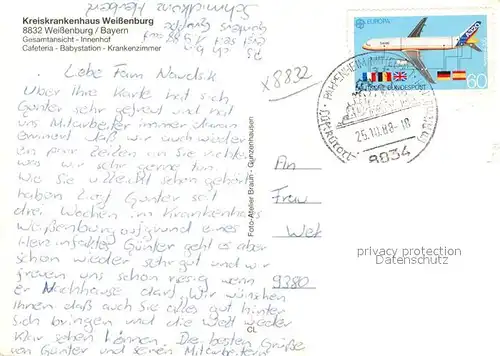 Kreiskrankenhaus Weißenburg
8832 Weißenburg / Bayern
Gesamtansicht - Innenhof
Cafeteria - Babystation - Krankenzimmer
Liebe Fam
Über Ihre Karte hat sich
Günter sehr gefreut und hat
uns Mitarbeiter immer daran
erinnert daß wir auch wieder
ein paar Zeilen an Sie richten
was wir sehr gerne tun.
Wie Sie vielleicht schon gehört
haben liegt Günter seit
drei Wochen im Krankenhaus
Weißenburg aufgrund eines
Herzinfarktes Günter geht es aber
schon wieder sehr gut und wir
freuen uns schon riesig wenn
er Nachhause darf. Wir wünschen
Ihnen daß auch Sie alles gut hinter
sich bringen und die Welt wieder
klar sehen können. Die besten Grüße
von Günter und seinen Mitarbeitern
x 8832
EUROPA
60
DEUTSCHE BUNDESPOST
25.10.88-10
8834
An
Frau
Wek
9380
Foto-Atelier Braun - Gunzenhausen
CL
privacy protection
Datenschutz